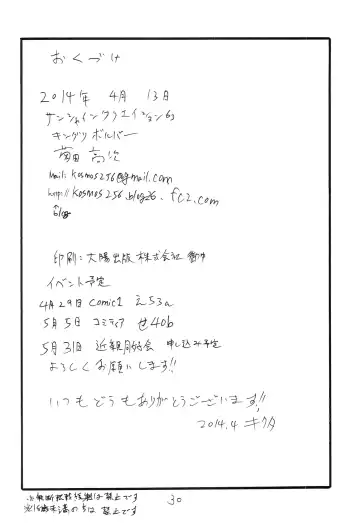 おくづけ
2014年 4月 13日
サンシャインクリエイション63
キングリボルバー
菊田 高次
mail: kosmos256@gmail.com
http://kosmos256.blog26.fc2.com
↑blog
印刷：太陽出版株式会社
イベント予定
4月29日 comic1 え53a
5月5日 コミティア せ40b
5月31日 近親月始会 申し込み予定
よろしくお願いします!!
いつもどうもありがとうございます!!
2014.4 キクタ
30
※無断転載複製は禁止です
※18歳未満の方は禁止です